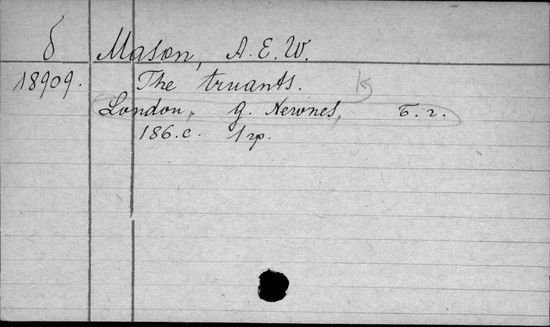 б Mason, A. E. W.
18909. The truants.
London, G. Newnes, б. г.
186. c. 1 rp.